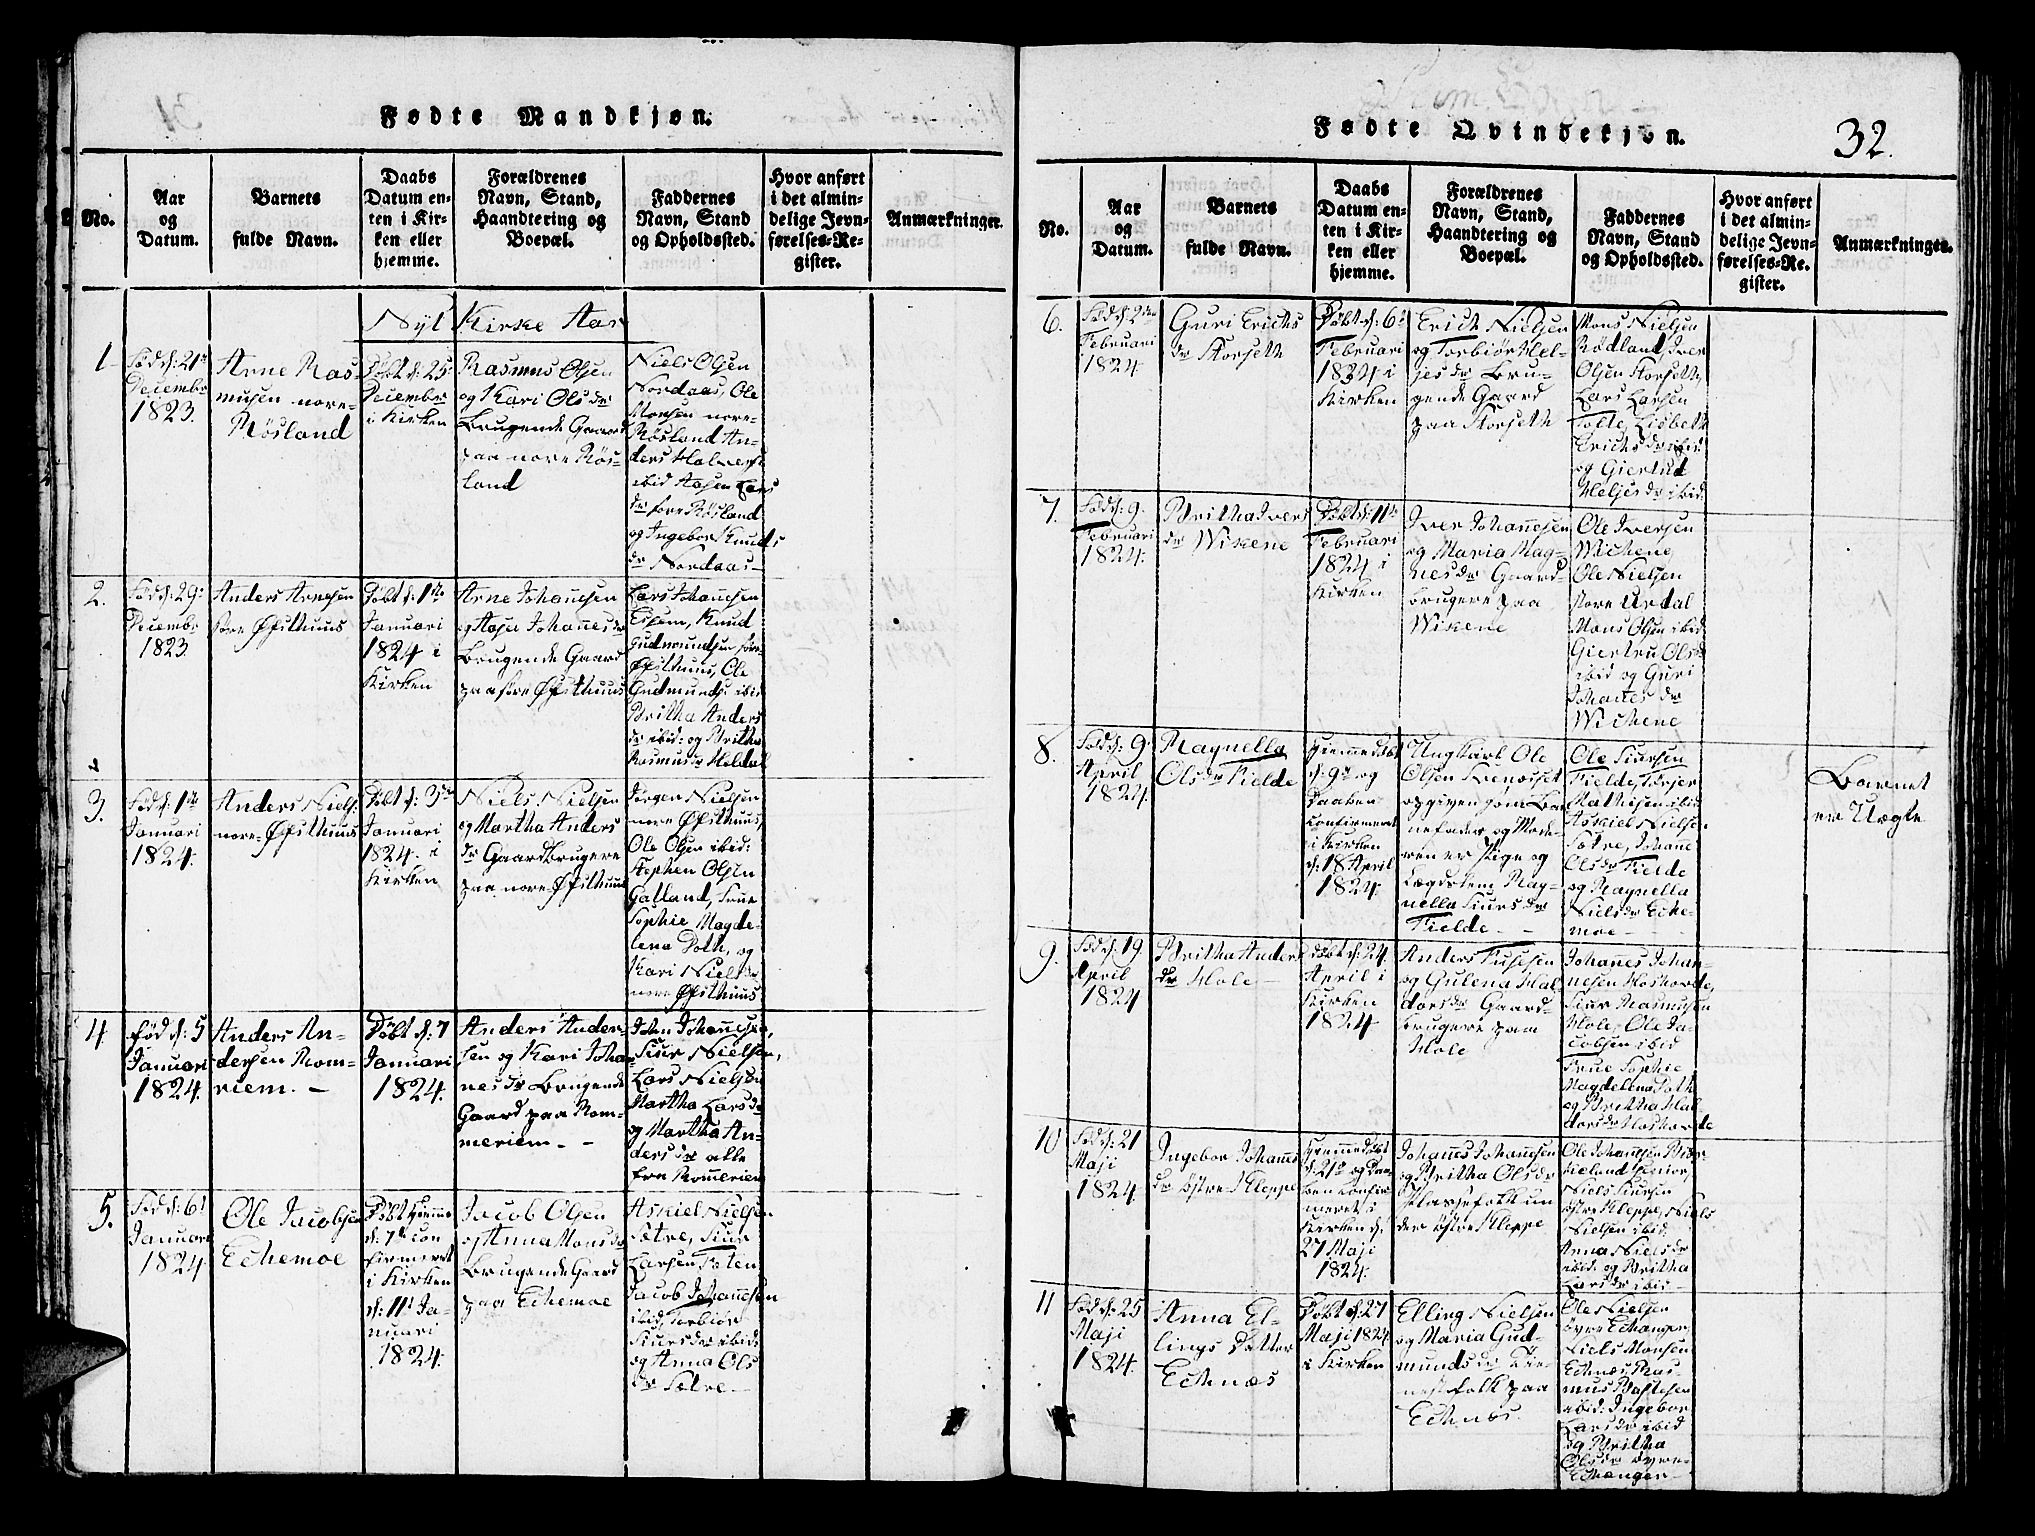 Fødte Mandkjøn.
No.
Aar
og
Datum.
Barnets
fulde Navn.
Daabs
Datum en-
ten i Kir-
ken eller
hjemme.
Forældrenes
Navn, Stand,
Haandtering og
Boepæl.
Faddernes
Navn, Stand
og Opholdssted.
Hvor anført
i det almin-
delige Jevn-
førelses-Re-
gister.
Anmærkninger.
Nyt Kirke Aar
1
Fød d: 21de
Decembr
1823.
Arne Ras-
musen nore-
Røsland
Døbt d: 25:
Decembr
i Kirken
Rasmus Olsen
og Kari Ols dr
Brugende Gaard
paa nore Røs-
land
Niels Olsen
Nordaas, Ole
Monsen nore-
Røsland An-
ders Halvers:
ibid Aasen Lars
dr søre Røsland
og Ingebor Knuds
dr Nordaas
2.
Fød d: 29:
Decembr
1823.
Anders Arnesen
søre Øfsthuus
Døbt d: 1ste
Januari
1824 i
Kirken
Arne Johannesen
og Aasa Johannes dr
Brugende Gaard
paa søre Øfsthuus
Lars Johannesen
Knud
Gudmundsen søre-
Øfsthuus, Ole
Gudmunds: ibid
Britha Anders
dr ibid: og Britha
Rasmus dr Heldal
3.
Fød d: 1ste
Januari
1824.
Anders Niels:
nore-Øfsthuus
Døbt d: 3die
Januari
1824. i
Kirken
Niels Nielsen
og Martha Anders
dr Gaardbrugere
paa nore-Øfsthuus
Jørgen Nielsen
nore Øfsthuus,
Ole Olsen ibid:
Stephen Olsen
Galland, Frue
Sophie Magde-
lena Poth, og
Kari Niels dr
nore Øfsthuus
4
Fød d: 5
Januari
1824.
Anders An-
dersen Rom-
riem. –
Døbt d: 7
Januari
1824.
Anders Ander-
sen og Kari Joha-
nes dr Brugende
Gaard paa Rom-
meriem. –
John Johannesen,
Siur Nielsen,
Lars Nielsen
Martha Lars dr
og Martha An-
ders dr alle
fra Romeriem
5.
Fød d: 6t
Januari
1824
Ole Jacobsen
Echemoe
Døbt hiemme
d: 7de con
firmeret
i Kirken
d: 11t Ja-
nuari
1824.
Jacob Olsen
og Anna Mons dr
Brugende Gaard
paa Echemoe
Askiel Nielsen
Sætre, Siur
Larsen Foten
Jacob Johannesen
ibid, Torbiør
Siurs dr ibid:
og Anna Ols
dr Sætre
Fødte Qvindekjøn.
32.
No.
Aar
og
Datum.
Barnets
fulde Navn.
Daabs
Datum en-
ten i Kir-
ken eller
hjemme.
Forældrenes
Navn, Stand,
Haandtering og
Boepæl.
Faddernes
Navn, Stand
og Opholdssted.
Hvor anført
i det almin-
delige Jevn-
førelses-Re-
gister.
Anmærkninger.
6.
Fød d: 2den
Februari
1824
Guri Erichs
dr Storseth
Døbt d: 6t
Februari
1824 i
Kirken
Erich Nielsen
og Torbiør Hel-
jes dr Bru-
gende Gaard
paa Storseth
Mons Nielsen
Rødland, Iver
Olsen Storseth
Lars Larsen
Tofte, Lisbeth
Erichs dr ibid
og Giertrud
Heljes dr ibid:
7.
Fød d: 9.
Februari
1824.
Britha Ivers
dr Wikene
Døbt d: 11te
Februari
1824 i
Kirken
Iver Johannesen
og Maria Mag-
nes dr Gaard-
brugere paa
Wikene
Ole Iversen
Wichene,
Ole Nielsen
store Urdal
Mons Olsen ibid
Giertru Ols dr
ibid og Guri
Johanes dr
Wichene
8.
Fød d: 9
April
1824.
Magnella
Ols dr Fielde
Hiemme Døbt
d: 9de og
Daaben
confirmeret
i Kirken
d: 18 April
1824.
Ungkarl Ole
Olsen
opgiven som Bar
nefader og Mode-
ren er Pige og
Lægdslem Mag-
nella Siurs dr
Fielde
Ole Siursen
Fielde, Torjer
Mathisen ibid
Askiel Nielsen
Sætre, Johane
Ols dr Fielde
og Magnella
Niels dr Eche-
moe
Barnet
er Uegte
9.
Fød d: 19
April
1824
Britha Anders
dr Hole
Døbt d: 24
April i
Kirken
1824
Anders Fusesen
og Gulena Hal
dors dr Gaard-
brugere paa
Hole
Johanes Johan-
nesen Hoshovde,
Siur Rasmusen
Hole, Ole Ja-
cobsen ibid
Frue Sophie
Magdelena Poth
og Britha Hal
dors dr Hoshovde
10
Fød d: 21
Maji
1824.
Ingebor Johanes
dr østre Kleppe
Hiemme døbt
d: 21de og Daa-
ben confir-
meret i
Kirken d:
27 Maji
1824.
Johanes Johannesen
og Britha Ols dr
Pladsefolk un-
der østre Kleppe
Ole Johannesen
Senior,
Niels Siursen
østre Kleppe, Niels
Nielsen ibid
Anna Niels dr
ibid: og Britha
Lars dr ibid
11
Fød d: 25
Maji
1824.
Anna El-
lings Datter
Echnæs
Døbt d: 27
Maji 1824
i Kirken
Elling Nielsen
og Maria Gud-
munds dr Tie-
nestefolk paa
Echnæs.
Ole Nielsen
øvre Echanger,
Niels Monsen
Echnæs, Ras-
mus Bastesen
ibid: Ingebor
Lars dr ibid
og Britha
Ols dr øvre-
Echanger